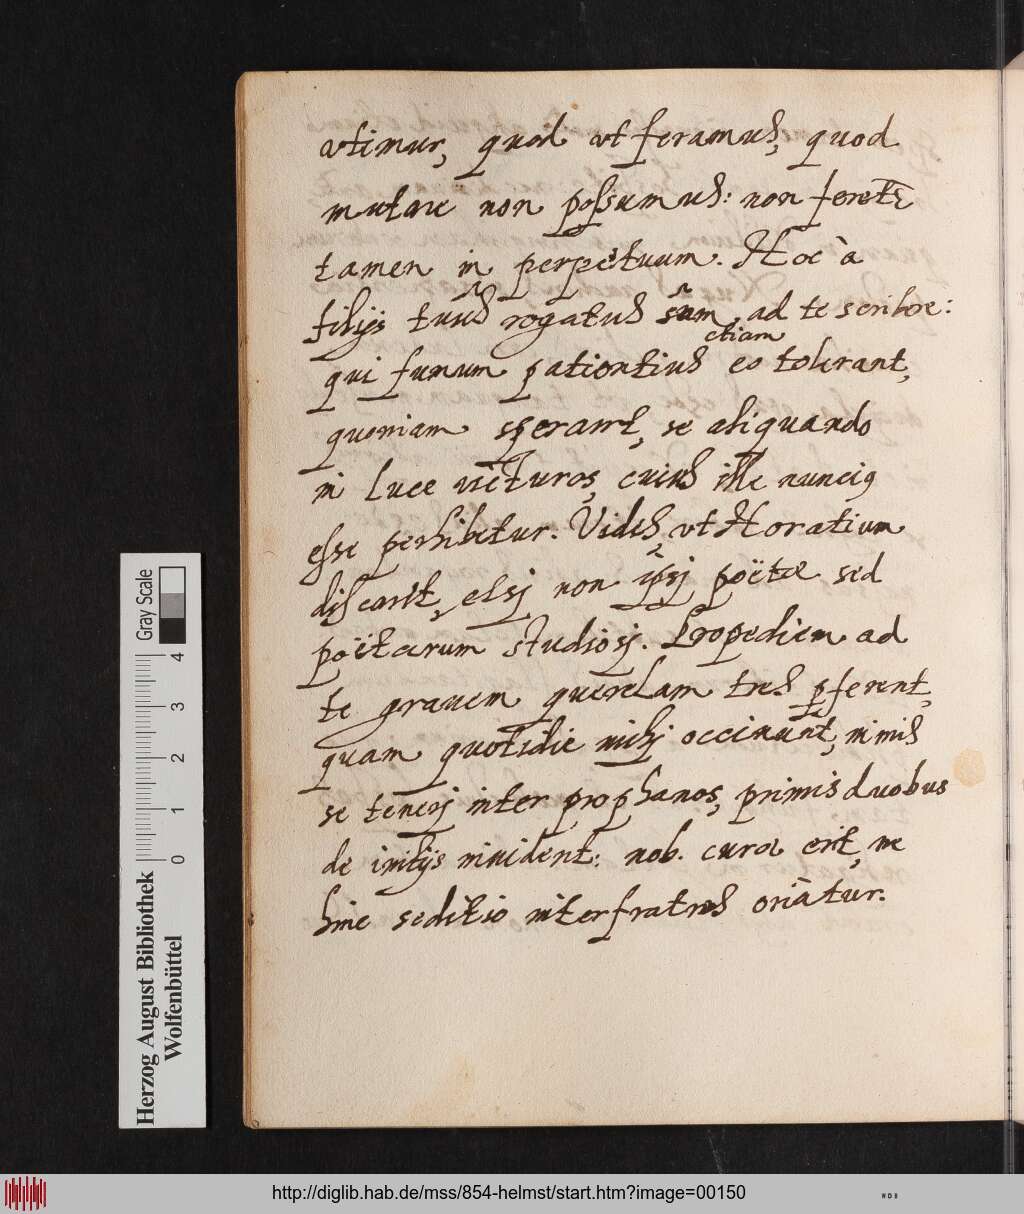 vtimur, quod vt feramus, quod
mutare non possumus: non feret̄
tamen in perpetuum. Hoc à
filijs tuis rogatus sum, ad te scribere:
etiam
qui fumum patientius eo tolerant,
quoniam sperant, se aliquando
in Luce victuros, cuius ille nuncius
esse perhibetur. Vides, vt Horatium
discant, etsj non ipsj poëtæ sed
poëtarum studiosj. Propediem ad
te grauem querelam tres pferent,
quam quotidie mihj occinunt, nimis
se tenerj inter prophanos, primis duobus
de initijs inuident: nob. curæ erit, ne
hinc seditio inter fratres oriàtur.
Gray Scale
0 1 2 3 4
Herzog August Bibliothek
Wolfenbüttel
http://diglib.hab.de/mss/854-helmst/start.htm?image=00150
WDB